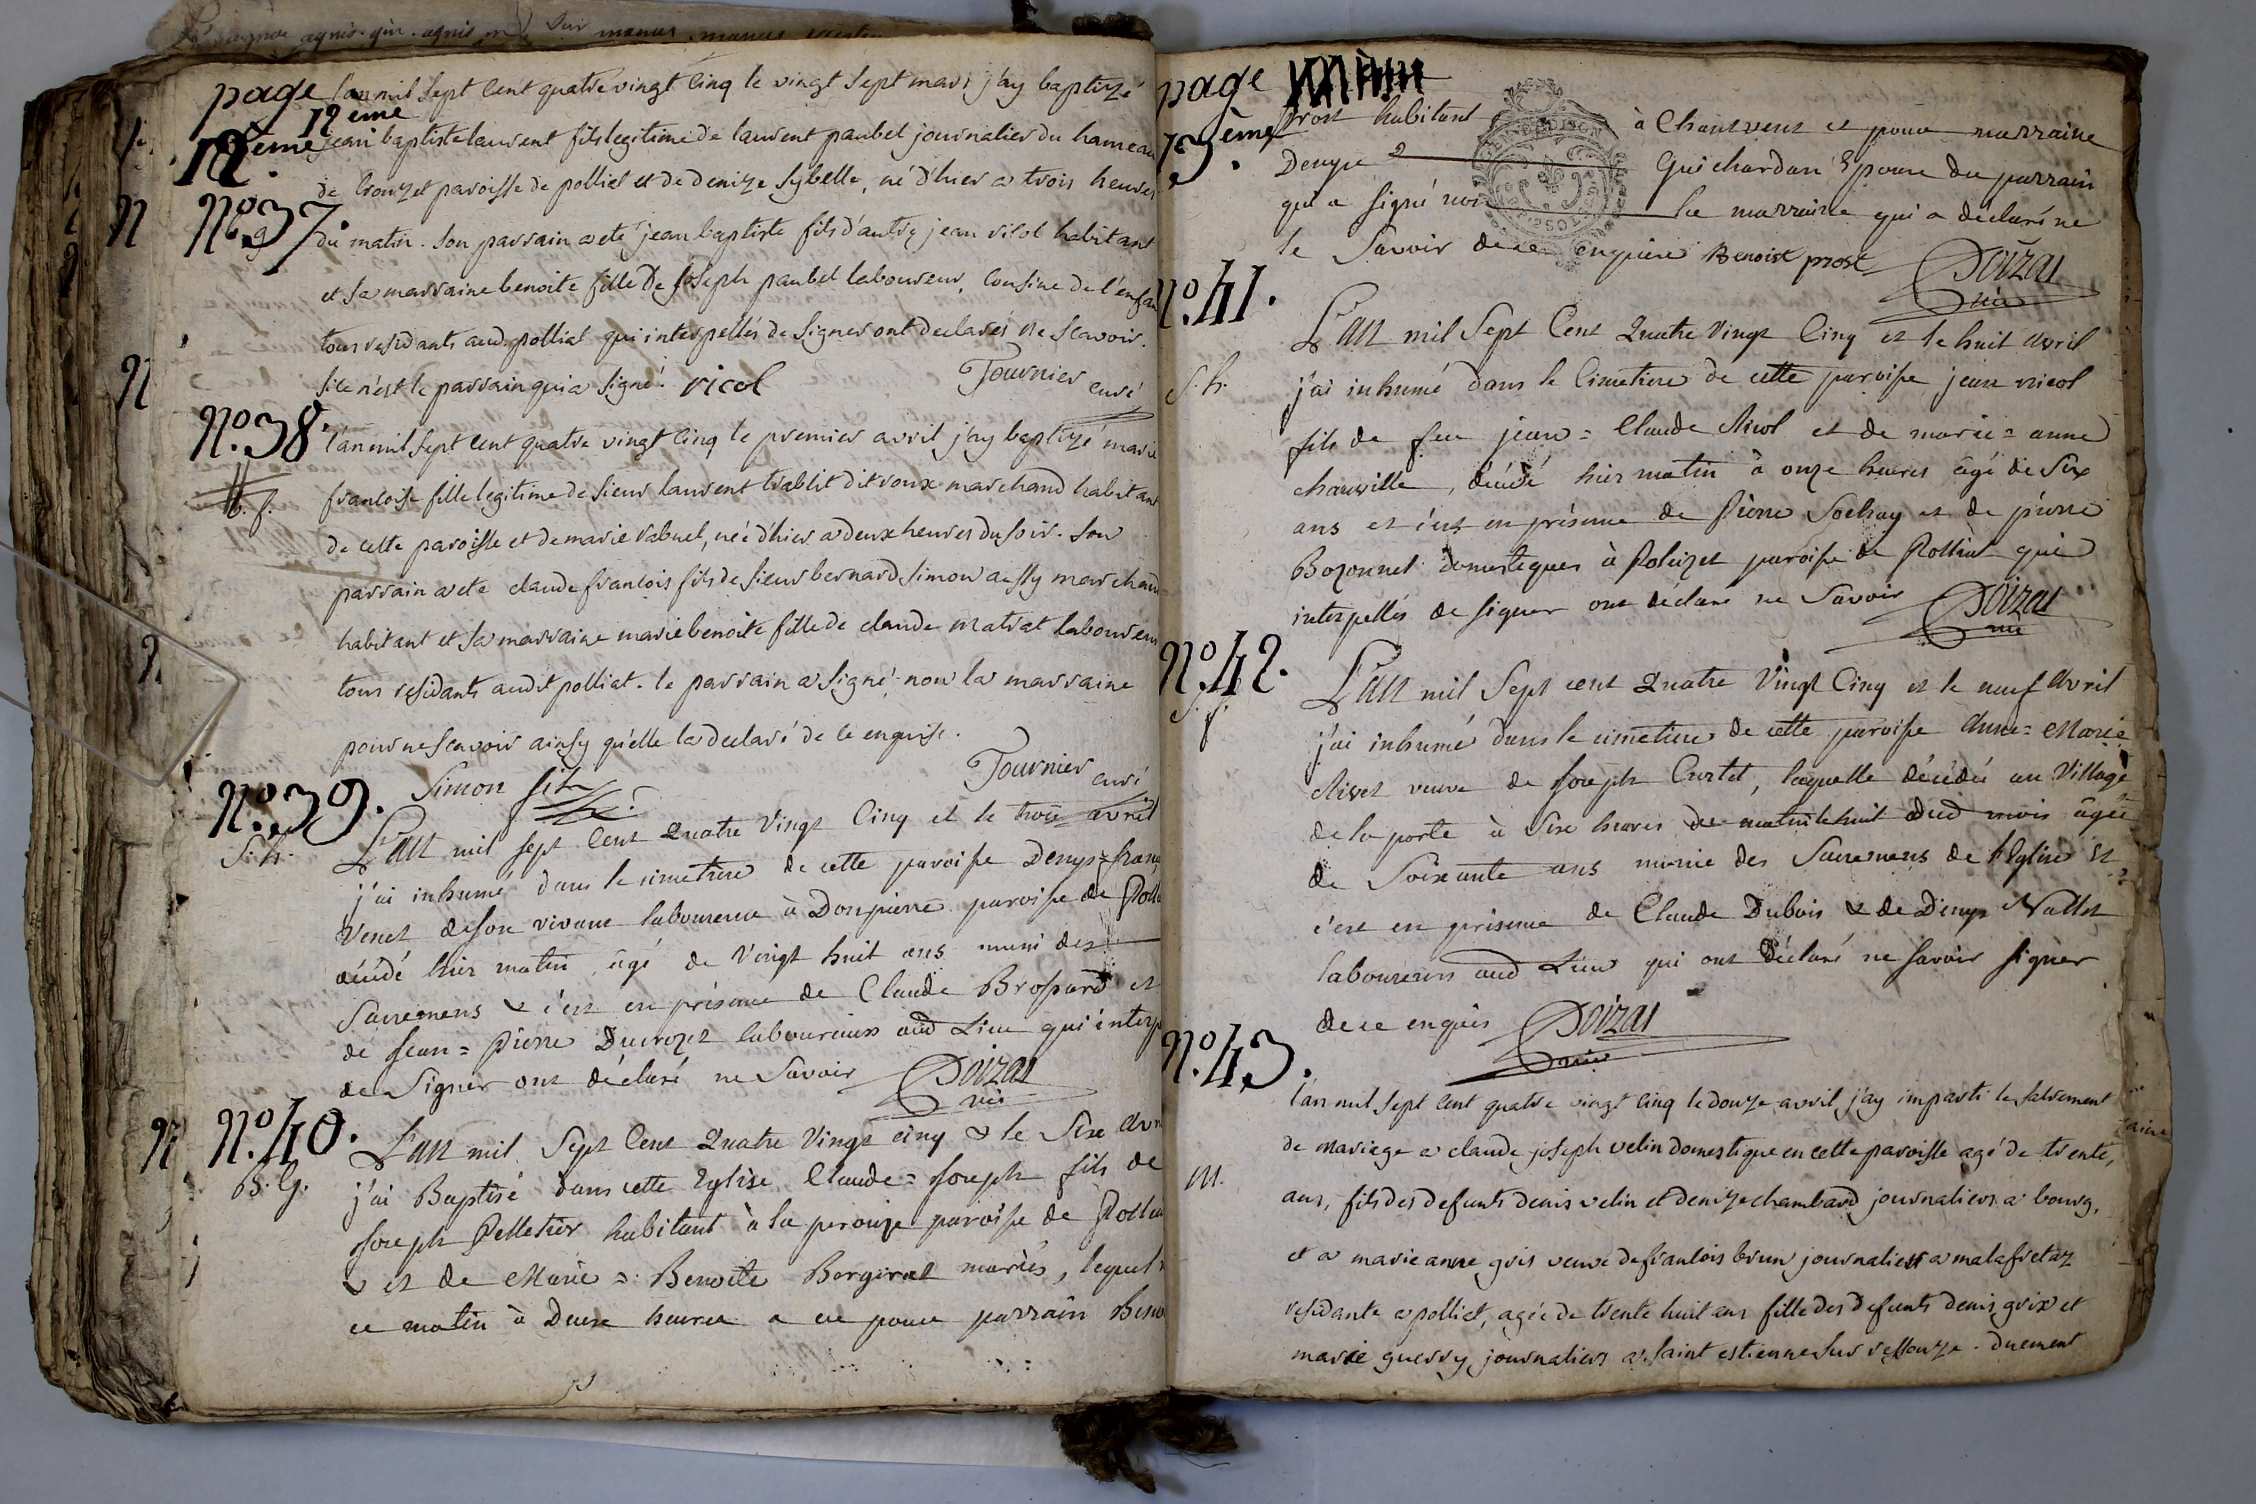 page 12ème
12ème
l'an mil sept cent quatre vingt cinq le vingt sept mars j'ay baptizé
jean baptiste laurent fils legitime de laurent paubel journalier du hameau
de Crouzet paroisse de polliat et de denize sybelle, né d'hier a trois heures
N N°. 37.
g
du matin. son parrain a eté jean baptiste fils d'autre jean ricol habitant
et sa marraine benoite fille de joseph paubel laboureur, cousine de l'enfan
tous residants aud. polliat qui interpellés de signer ont declarés ne scavoir.
N
si ce n'est le parrain qui a signé. ricol Tournier curé
N°. 38.
l'an mil sept cent quatre vingt cinq le premier avril j'ay baptizé marie
b. f.
francoise fille legitime de sieur laurent trablit dit roux marchand habitant
de cette paroisse et de marie rabuel, née d'hier a deux heures du soir. son
parrain a eté claude francois fils de sieur bernard simon aussy marchand
habitant et sa marraine marie benoite fille de claude matrat laboureur
tous residants audit polliat. le parrain a signé non la marraine
pour ne scavoir ainsy qu'elle la declaré de ce enquise.
Simon fils Tournier curé
N°. 39.
S. h.
L'an mil sept Cent Quatre Vingt Cinq et le trois avril
j'ai inhumé dans le cimetiere de cette paroisse Denys=franç
Venet de son vivant laboureur à Donpierre paroisse de Polli
décédé hier matin, âgé de Vingt huit ans muni des
Sacremens & c'est en présence de Claude Brossard et
de Jean=Pierre Ducrozet laboureurs aud Lieu qui interp
de Signer ont déclaré ne Savoir Poizat
N N°. 40.
B. G.
L'an mil Sept Cent Quatre Vingt cinq & le Six avr
j'ai Baptisé dans cette Eglise Claude=Joseph fils de
Joseph Pelletier habitant à la perouze paroisse de Pollia
et de Marie=Benoite Bergiret mariés, lequel
ce matin à Deux heures a eu pour parrain Beno
page
13ème
prost habitant à Chanvent et pour marraine
Denyse Guichardan Epouse du parrain
qui a signé non la marraine qui a déclaré ne
le Savoir de ce enquise Benoist prost Poizat
N°. 41.
L'an mil Sept Cent Quatre Vingt Cinq et le huit avril
S. h.
j'ai inhumé dans le Cimetiere de cette paroisse jean nicol
fils de feu jean=Claude Nicol et de marie=anne
charville, décédé hier matin à onze heures âgé de Six
ans et c'est en présence de Pierre Sochay et de pierre
Bozonnet domestiques à Poleizet paroisse de Polliat qui
interpellés de signer ont déclaré ne Savoir Poizat
N°. 42.
S. f.
L'an mil Sept cent Quatre Vingt Cinq et le neuf avril
j'ai inhumé dans le cimetiere de cette paroisse Anne=Marie
Nivet veuve de Joseph Curtet, laquelle décédée au Village
de la porte à Six heures du matin le huit dud mois âgée
de Soixante ans munie des Sacremens de l'Eglise et
c'est en présence de Claude Dubois & de Denys Nallet
laboureurs aud Lieu qui ont Déclaré ne savoir signer
de ce enquis Poizat
N°. 43.
l'an mil sept cent quatre vingt cinq le douze avril j'ay imparti le sacrement
de mariage a claude joseph velin domestique en cette paroisse agé de trente,
M.
ans, fils des defunts denis velin et denize chambard journaliers a bourg,
et a marie anne gris veuve de francois brun journalier a malafretaz
residante a polliat, agée de trente huit ans fille des defunts denis grix et
marie guerry journaliers a saint estienne sur ressouze. duement